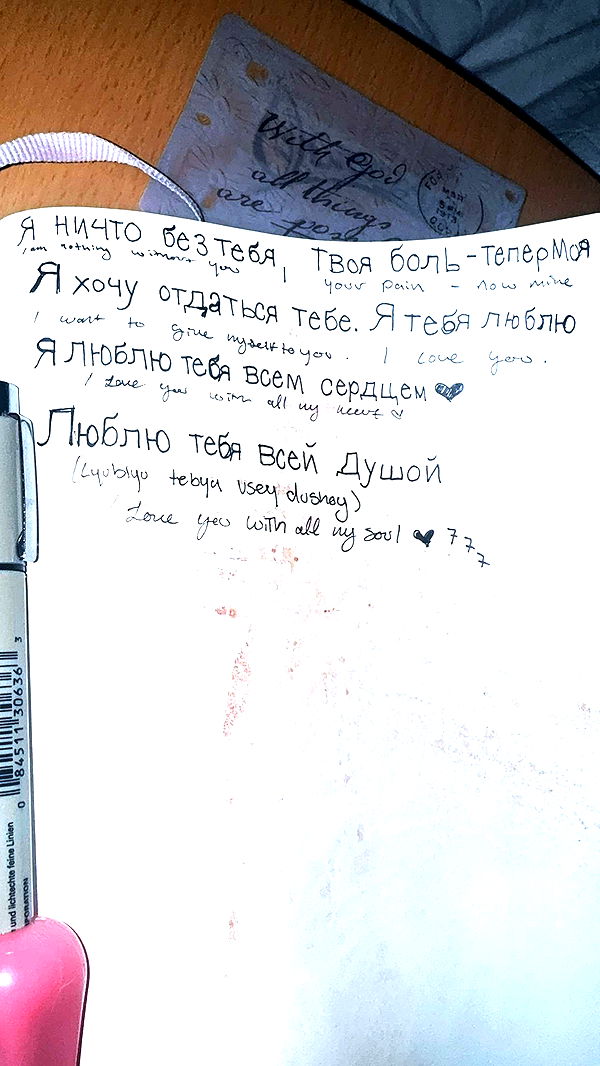 With God
all things
are
Я ничто без тебя, Твоя боль - тепер моя
I am nothing without you your pain - now mine
Я хочу отдаться тебе. Я тебя люблю
I want to give myself to you. I love you.
Я люблю тебя всем сердцем ♥
I love you with all my heart ♡
Люблю тебя всей душой
(Lyublyu tebya vsey dushoy)
I Love you with all my soul ♥ 777
0 84511 30636 3
und lichtechte feine Linien